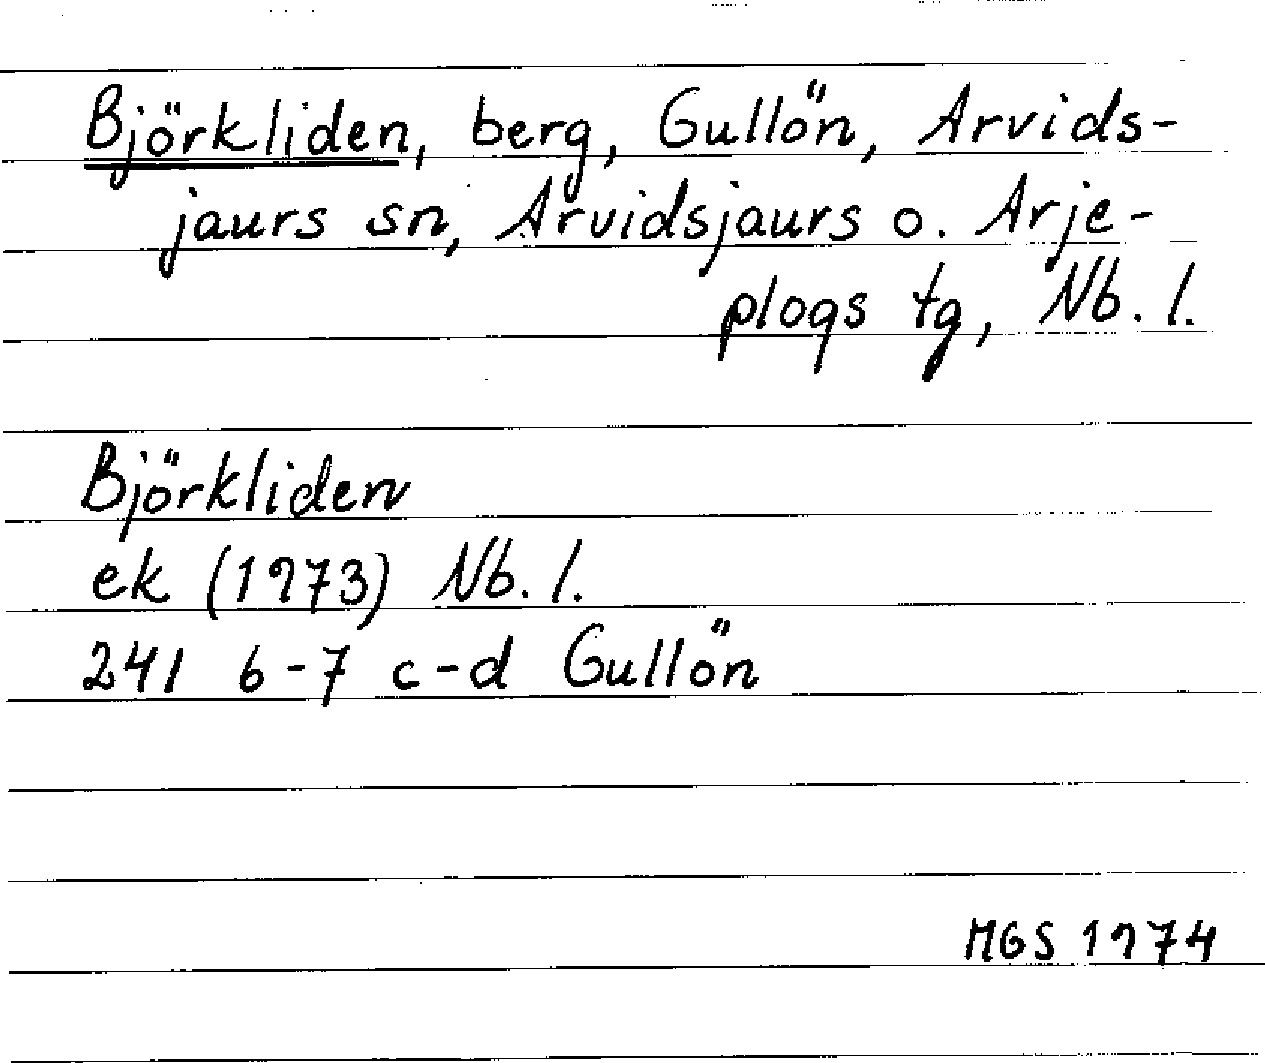 Björkliden, berg, Gullön, Arvids-
jaurs sn, Arvidsjaurs o. Arje-
plogs tg, Nb. l.
Björkliden
ek (1973) Nb. l.
241 6-7 c-d Gullön
MGS 1974